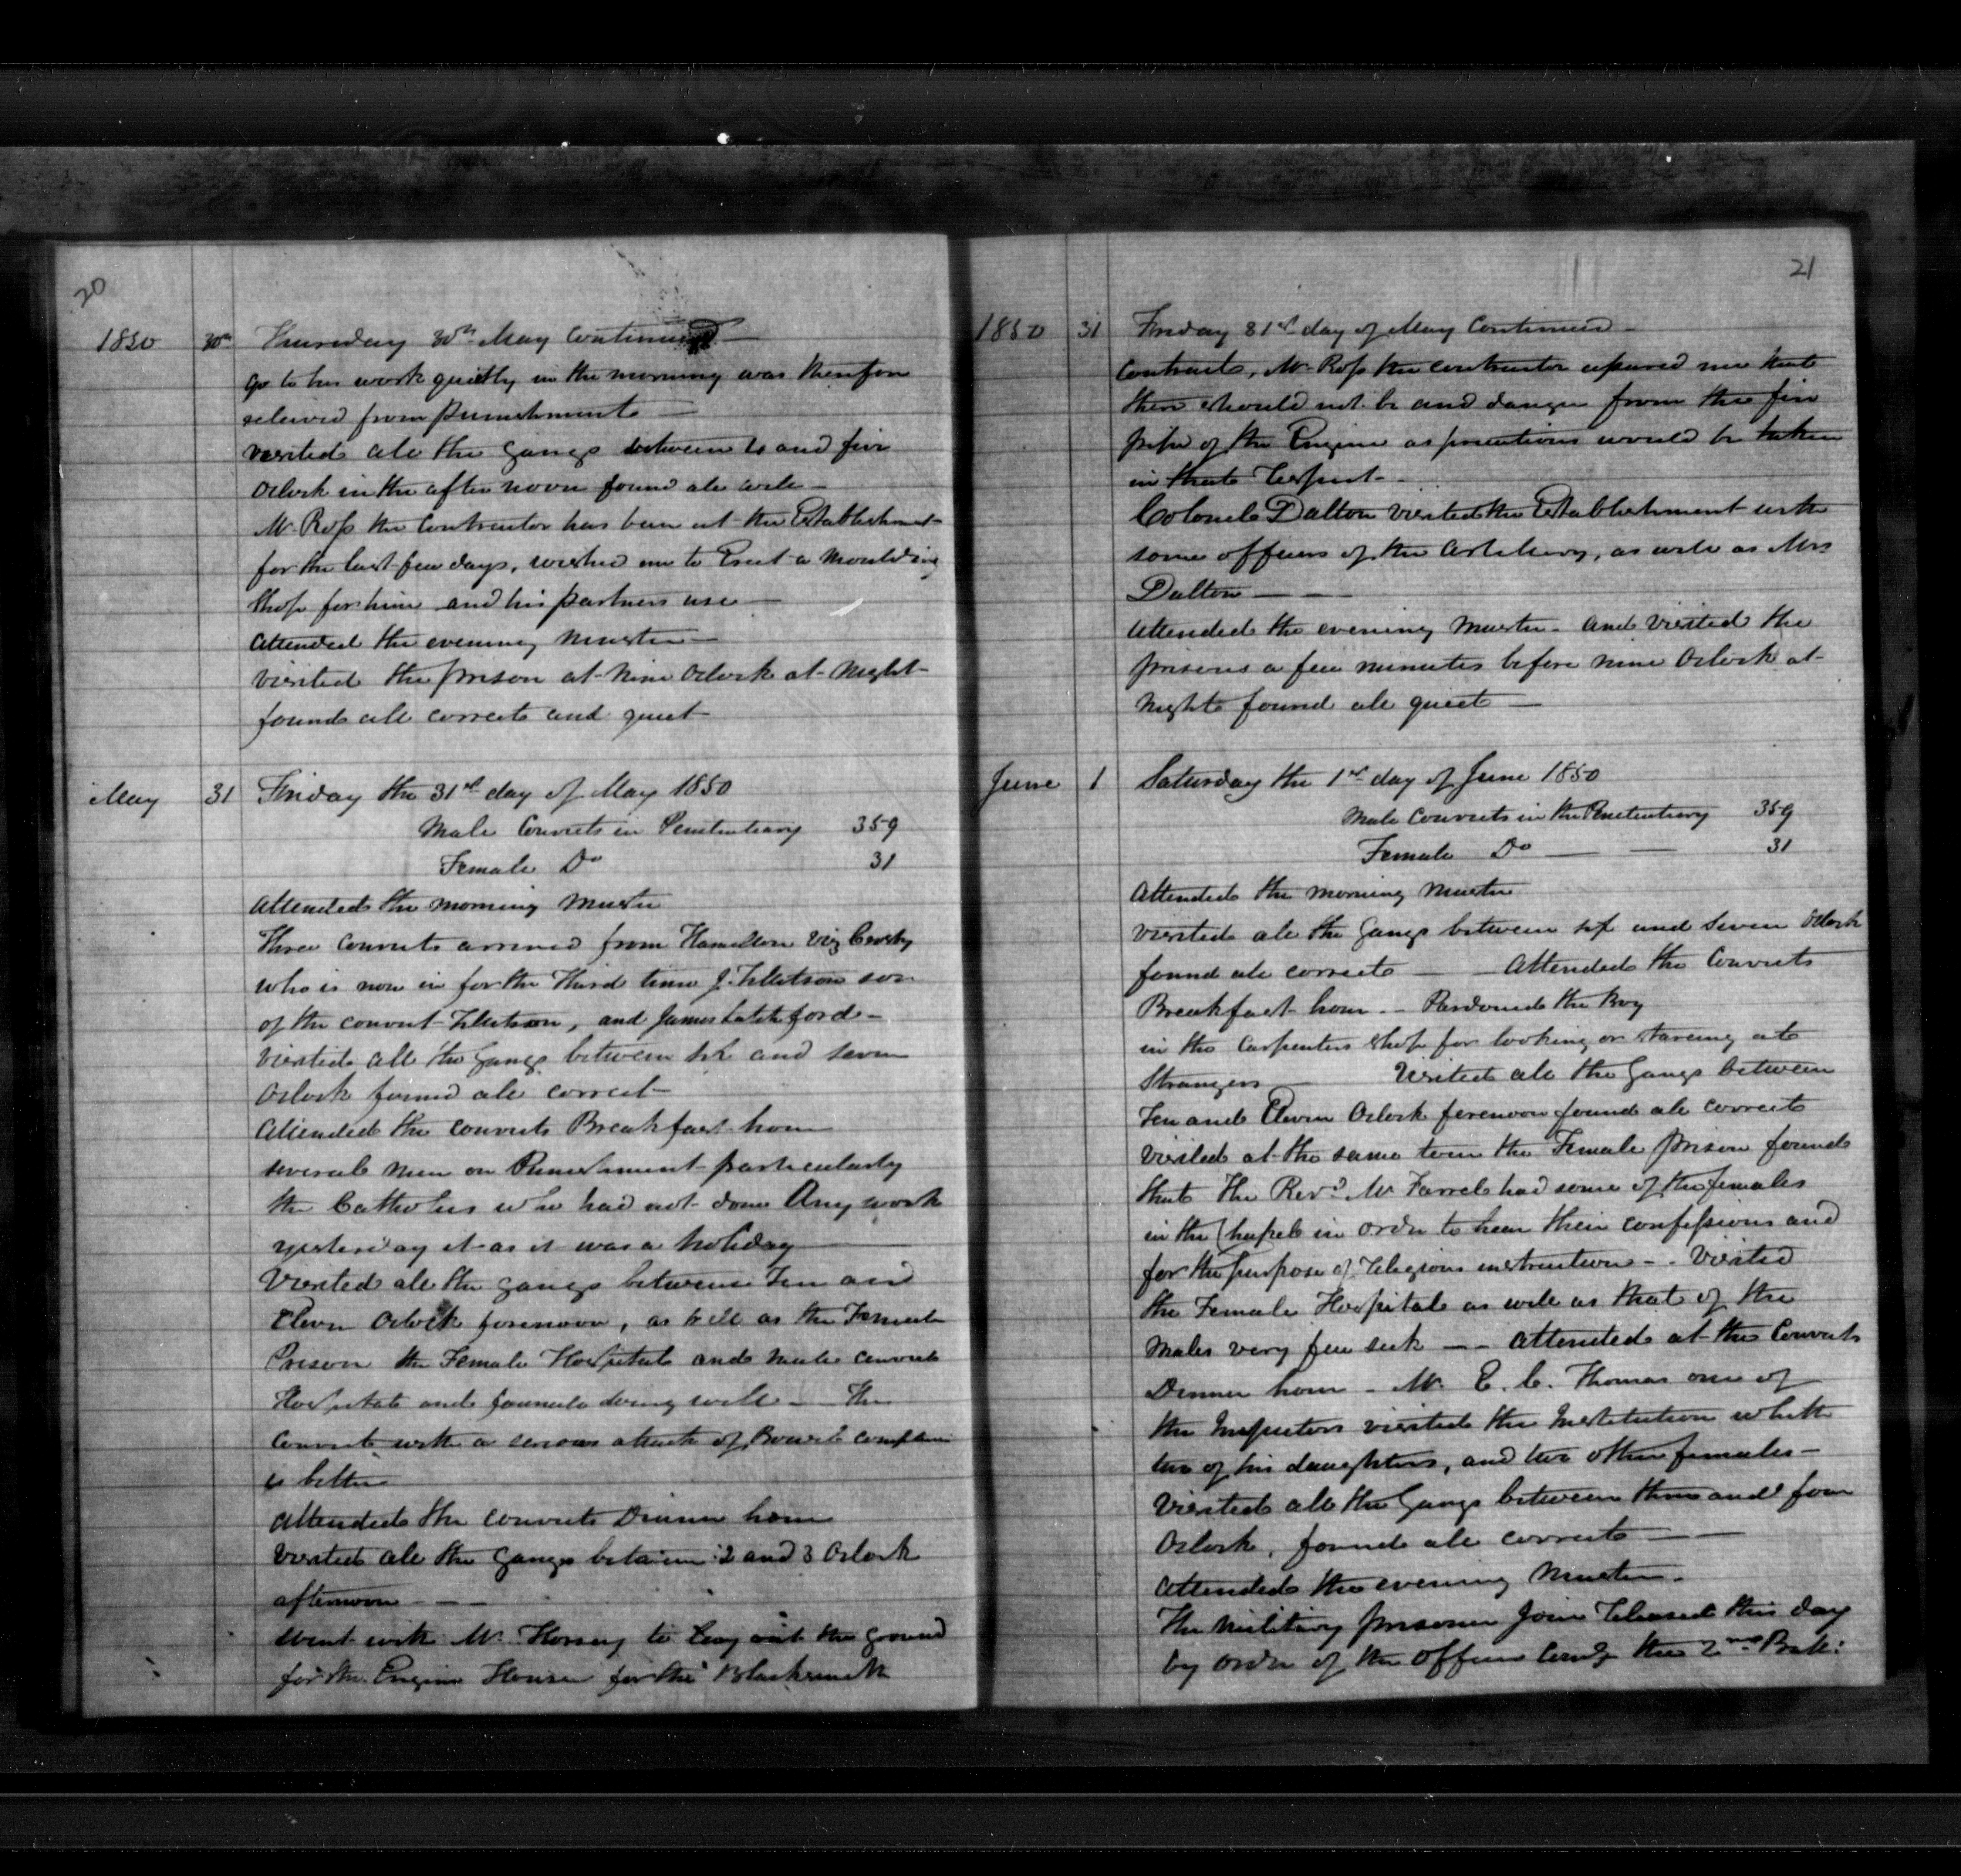 20
1850 30th Thursday 30th May Continued —
go to his work quietly in the morning was therefore
releived from punishment —
visited all the gangs between 4 and five
Oclock in the after noon found all well —
Mr. Ross the Contractor has been at the Establishment
for the last few days, wished me to Erect a Moulding
Shop for him and his partners use —
attended the evening Muster —
visited the prison at nine Oclock at Night
found all correct and quiet
May 31 Friday the 31st day of May 1850
Male Convicts in Penitentiary 359
Female Do 31
Attended the morning Muster
Three Convicts arrived from Hamilton Viz
who is now in for the Third time J. Tillitson son
of the convict Tillitson, and James Latchford —
visited all the Gangs between six and seven
Oclock found all correct
Attended the convicts Breakfast hour
several men on Punishment particularly
the Catholics who had not done Any work
yesterday it as it was a holiday —
Visited all the gangs between Ten and
Eleven Oclock forenoon, as well as the Female
Prison the Female Hospital and male convict
Hospital and found all doing well — The
Convict with a serious attack of Bowel complain
is better
Attended the convicts Dinner hour
Visited all the gangs between 2 and 3 Oclock
afternoon — —
Went with Mr. Horsey to lay out the ground
for the Engine House for the Blacksmith
21
1850 31 Friday 31st day of May Continued —
Contract, Mr. Ross the contractor assured me that
there should not be and danger from the fire
pipe of the Engine as precautions would be taken
in that respect —
Colonel Dalton visited the Establishment with
some officers of the Artillery, as well as Mrs
Dalton — —
attended the evening Muster — and visited the
prisons a few minutes before nine Oclock at
night found all quiet —
June 1 Saturday the 1st day of June 1850
Male Convicts in the Penitentiary 359
Female Do — — 31
Attended the morning Muster
visited all the gangs between six and seven Oclock
found all correct — — Attended the Convicts
Breakfast hour — Pardoned the Boy
in the Carpenters shop for looking or stareing at
Strangers — Visited all the Gangs between
Ten and Eleven Oclock forenoon found all correct
Visited at the same time the Female prison found
that The Revd. Mr Farrel had some of the females
in the Chapel in order to hear their confessions and
for the purpose of religious instruction — Visited
the Female Hospital as well as that of the
Males very few sick — — attended at the Convicts
Dinner hour — Mr. E. C. Thomas one of
the Inspectors visited the Institution whith
two of his daughters, and two other females —
Visited all the Gangs between three and four
Oclock, found all correct — —
Attended the evening Muster —
The Military prisoner released this day
by order of the officer Comdg the 2nd Batt: